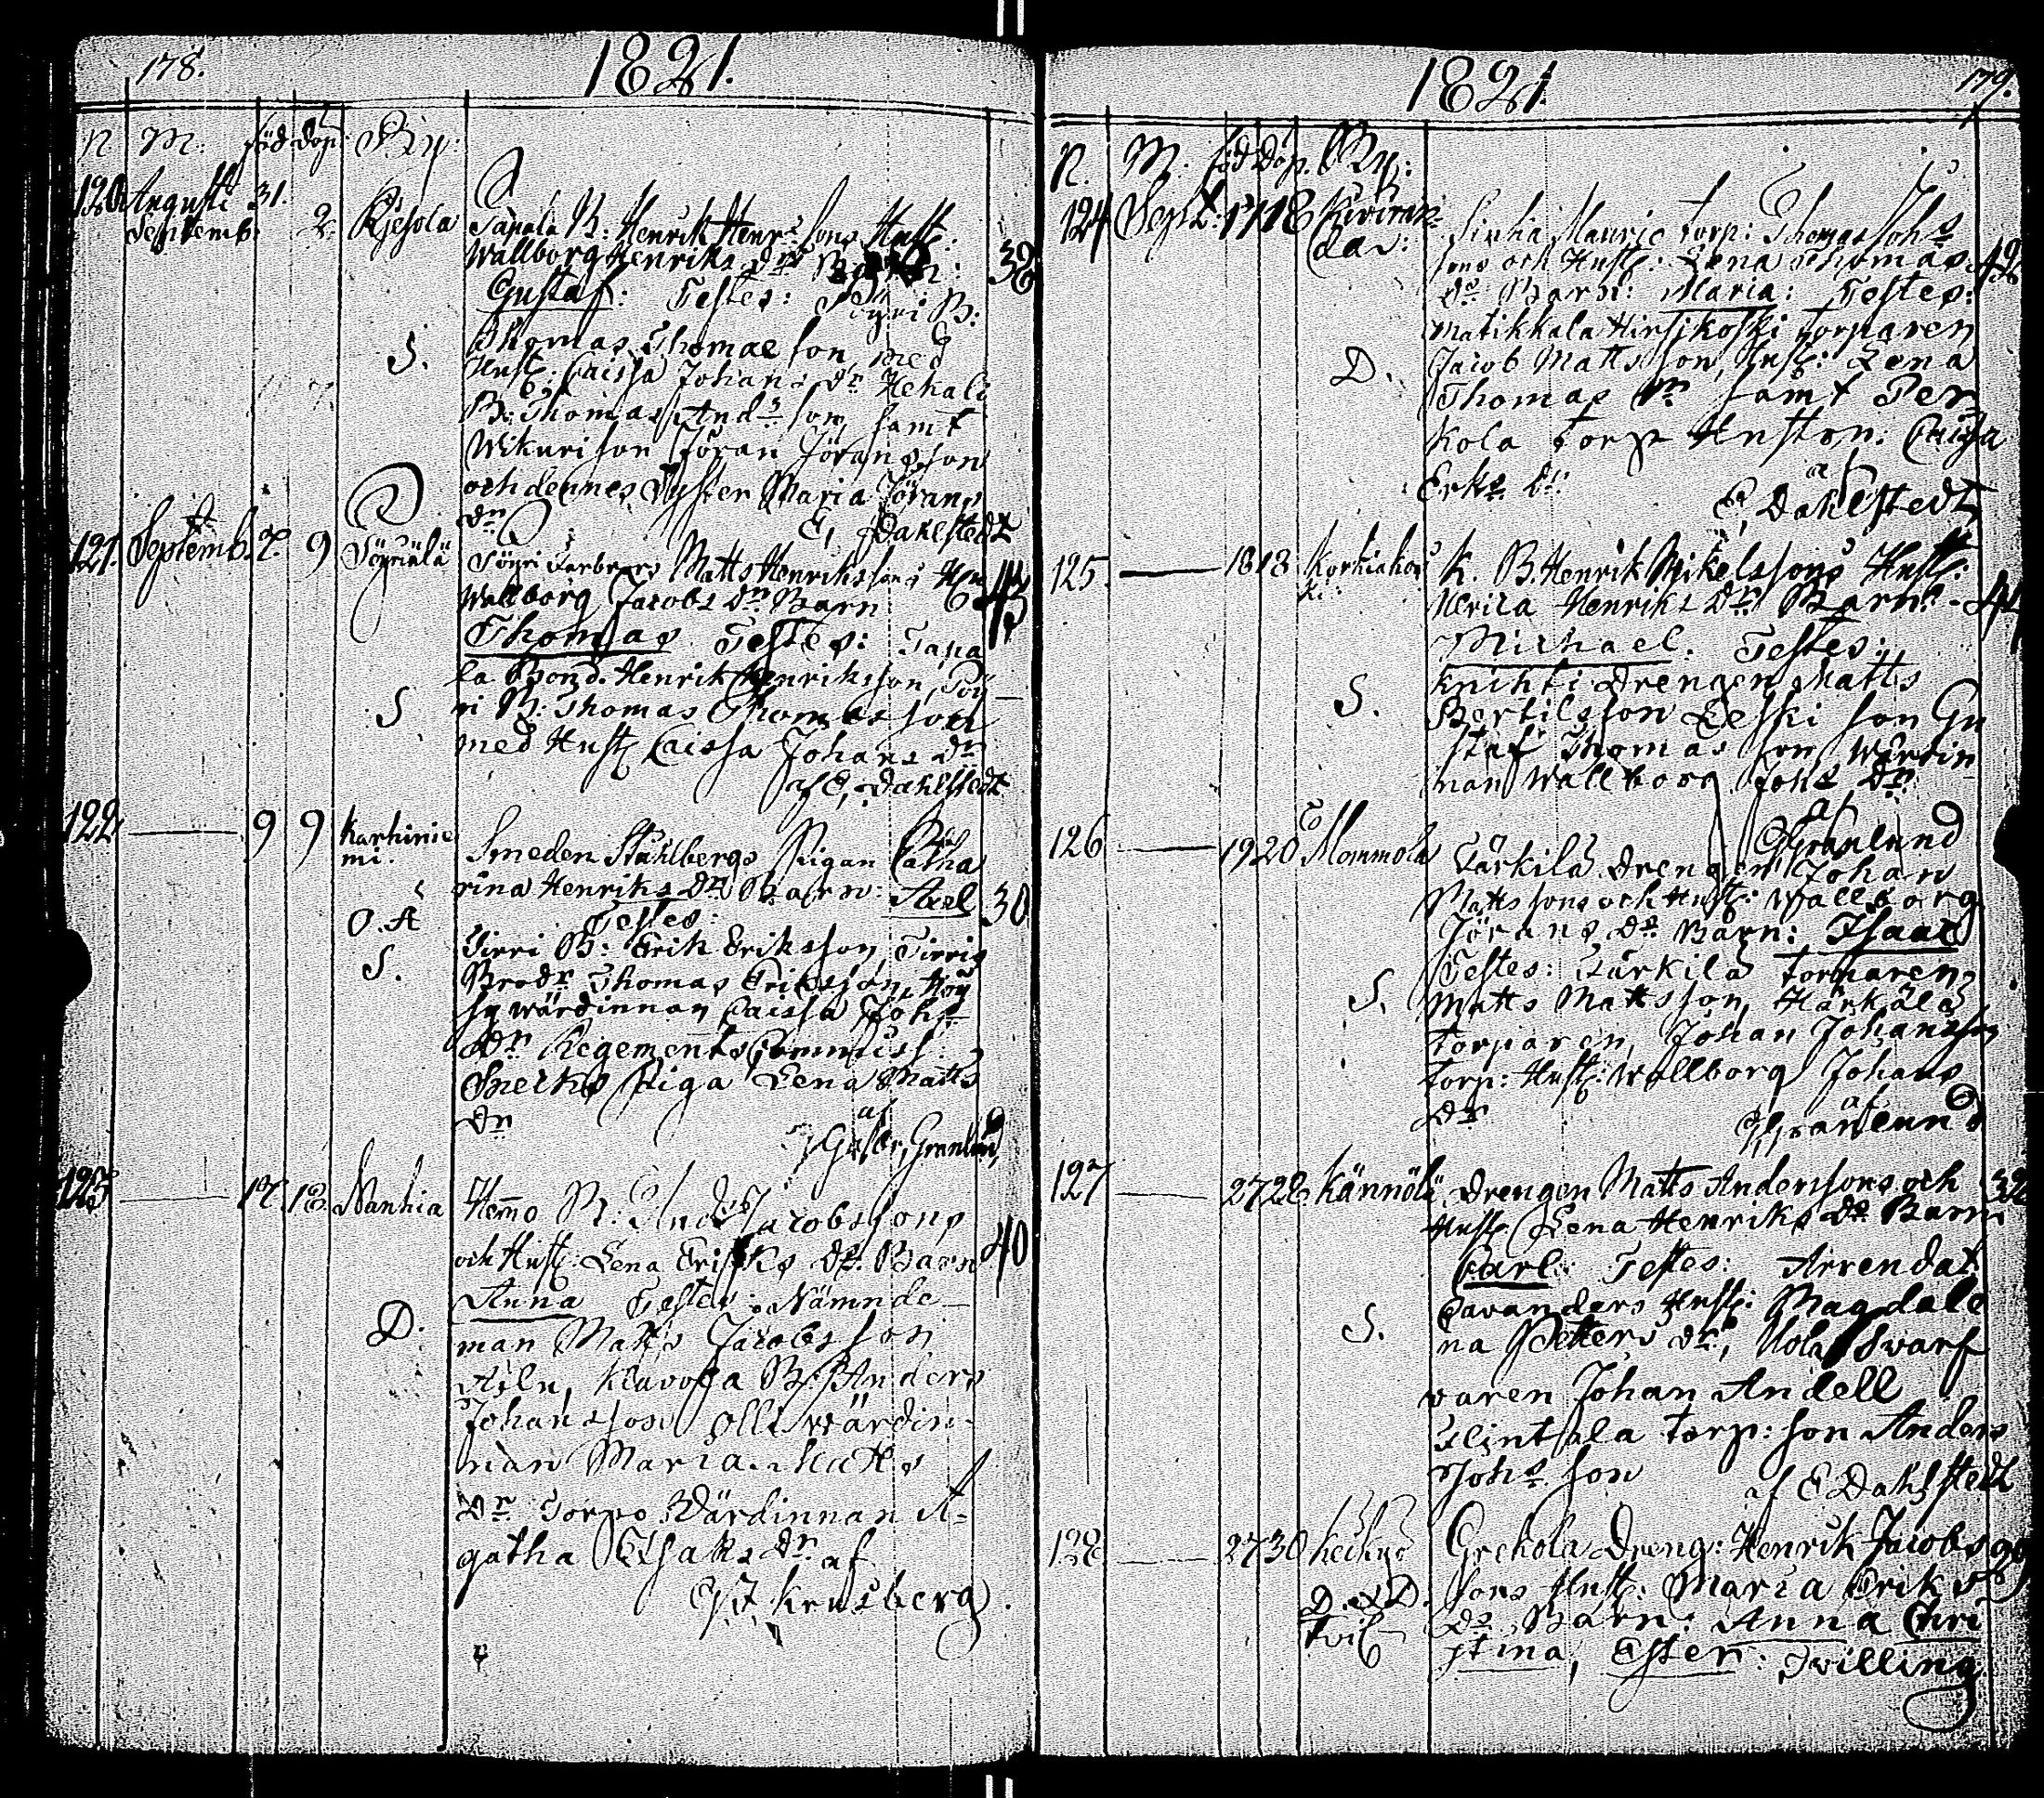 178.
1821.
N M: föd Döp: By:
120 Augusti 31.
Septemb: 2. Kjesola Tapala B: Henrik Henrs sons Hust:
Wallborg Henriks dr Barn: 38
Gustaf: Testes: Pöyri B:
S. Thomas Thomae son, med
Hust: Caissa Johans dr Hekali
B: Thomas Ands son, samt
Wikuri son Jöran Jörans son
och dennes Syster Maria Jörans
dr E, Dahlstedt
121. Septemb. 7. 9 Pöyriälä Pöyri Farbrors Matts Henrikssons
Wallborg Jacobs dr Barn 43
Thomas Testes: Tapa
la Bond. Henrik Henriksson, Pöy
S ri B: Thomas Thomasson
med Hust Caissa Johans dr
af E, Dahlstedt
122 9 9 Karhinie
mi. Smeden Ståhlbergs Pigan Catha
rina Henriks dr Barn: Axel 30
O. Ä Testes:
Tirri B: Erik Eriksson Tirris
S. Brodr Thomas Eriksson,
wärdinnan Caissa Johs
dr Regements Commiss:
Piga Lena Matts
dr
af Granlund
123 17. 18. Nanhia Hemo B: Ands Jacobssons
och Hust: Lena Eriks dr. Barn 40
Anna Testes: Nämnde
D. man Matts Jacobsson
Äilu, Klavola B: Anders
Johansson Olli wärdin-
nan Maria Matts
dr Torpo Wärdinnan A-
gatha Esaks dr af
Krusberg
1821.
179.
N. M. föd Döp. By:
124 Sept: 17 18
Mauric torp: Thomas Johs
sons och Hust: Lena Thomas
dr Barn: Maria: Testes:
Matikkala Hirsjkoski torparen
D. Jacob Mattsson, Hust: Lena
Thomas dr samt Per
kola torp Hustrn: Caisa
Erks dr: af
E, Dahlstedt
125. 18 18 Korkiakos
ki: K. B. Henrik Mikelssons Hust:
Henriks dr Barn: 44
Michael. Testes:
Knihti Drengen Matts
S. Bertilsson Leski son Gu
staf Thomas son Wärdin
nan Wallborg Johs dr
af
Granlund
126 19 20 Mommola Särkilä Drengen Johan
Matts sons och Hust: Wallborg
Jörans dr Barn: Isaac
Testes: Särkilä torparen
S. Matts Mattsson, Härkälä
torparen, Johan Johansson
torp: Hust: Wallborg Johans
dr af
Granlund
127 27 28 Kännölä Drengen Matts Anderssons och 32
Hust Lena Henriks dr Barn
Carl: Testes: Arrendat
Cavanders Hust: Magdale
S. na Petters dr, Uola Swarf
waren Johan Andell
Flintala torp: son Anders
Johs son af E Dahlstedt
128 27 30 Keihyö Grekola Dreng: Henrik Jacobs
sons Hust: Maria Eriks
D. & D.
Tvil dr Barn: Anna Chri
stina, Ester: Tvilling